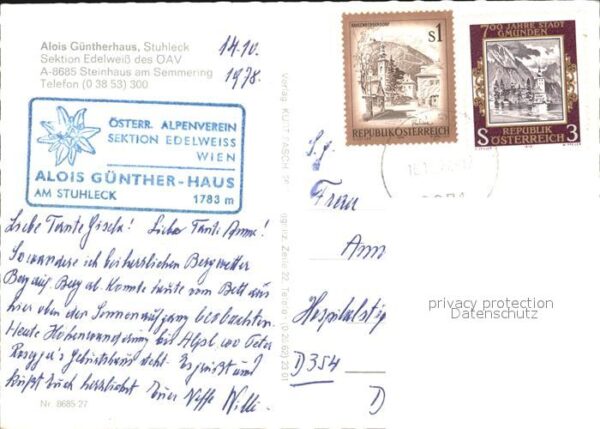 Alois Güntherhaus, Stuhleck
Sektion Edelweiß des ÖAV
A-8685 Steinhaus am Semmering
Telefon (0 38 53) 300
14.10.
1978.
ÖSTERR. ALPENVEREIN
SEKTION EDELWEISS
WIEN
ALOIS GÜNTHER-HAUS
AM STUHLECK 1783 m
Liebe Tante Gisela! Liebe Tanti Anna!
So wandere ich bei herrlichen Bergwetter
Berg auf Berg ab. Konnte heute vom Bett aus
hier oben den Sonnenaufgang beobachten.
Heute Höhenwanderung bis Alpl wo Peter
Geburtshaus steht. Es grüßt und
küßt Euch herzlichst Euer Neffe Willi.
Nr. 8685-27
Verlag KURT
S1
REPUBLIK ÖSTERREICH
700 JAHRE STADT
GMUNDEN
REPUBLIK
S ÖSTERREICH 3
S. g.
Frau
Ann
Hospitalstg
D 354
D
privacy protection
Datenschutz